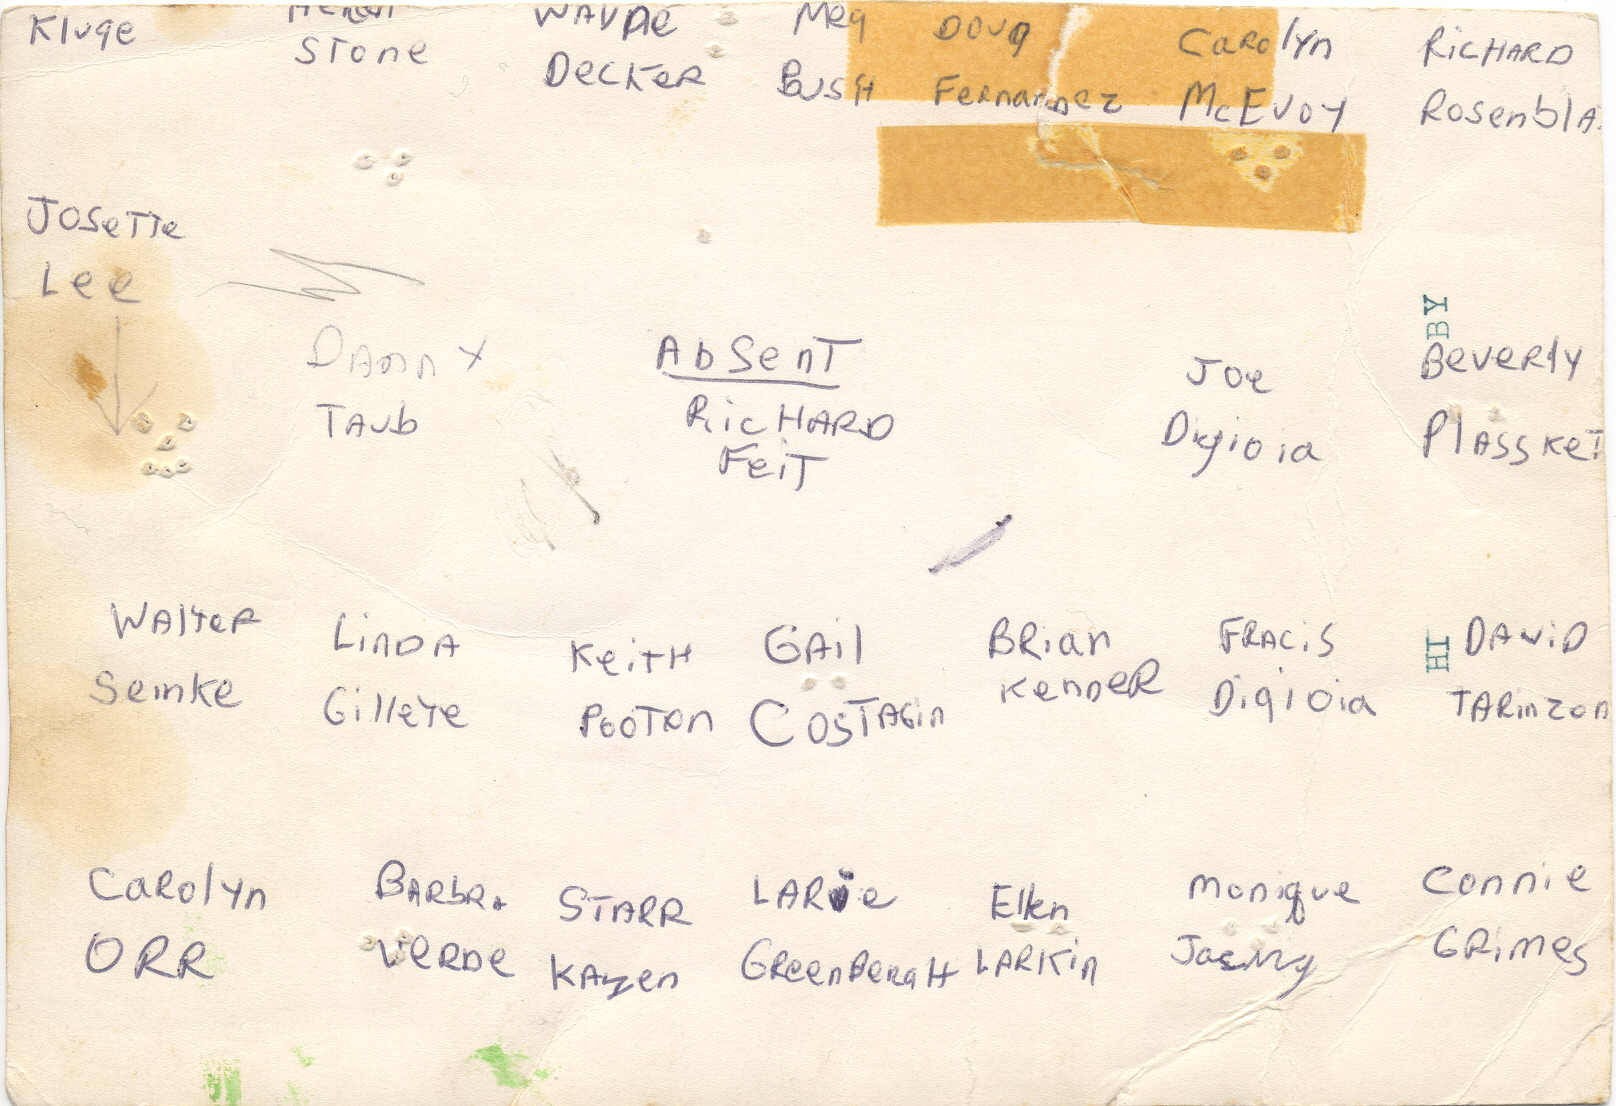 Kluge
STone
WAYNe
DecKeR
Meg
BUSH
DOUg
FeRnandez
CaRolyn
McEvoy
RicHARD
RosenblA
JoSeTTe
Lee
TAub
AbSenT
RicHARD
FeiT
Joe
Digioia
BY
BeveRly
PlASSKeT
WAlTeR
Semke
LinDA
GilleTe
KeiTH
POOTON
GAil
COSTAGin
BRian
KenneR
FRAciS
Digioia
HI
DAviD
TARinzon
CaRolyn
ORR
BARbRa
VeRDe
STARR
KAyen
LARie
GReenBeRgH
Ellen
LARKin
Monique
Connie
GRimes